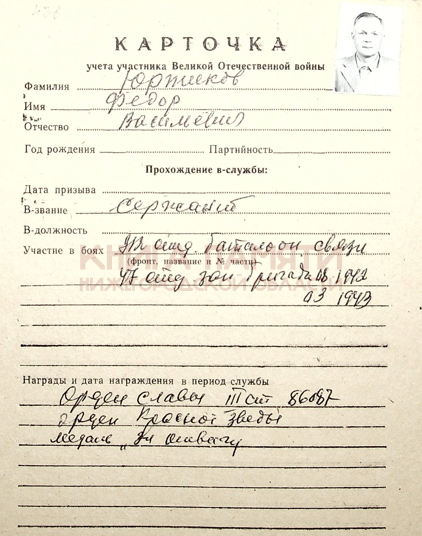 КАРТОЧКА
учета участника Великой Отечественной войны
Фамилия
Имя Федор
Отчество Васильевич
Год рождения Партийность
Прохождение в-службы:
Дата призыва
В-звание Сержант
В-должность
Участие в боях отд. батальон связи
(фронт, название и № части)
КНИГА ПАМЯТИ
47 отд 1942
НИЖЕГОРОДСКОЙ ОБЛАСТИ
03 1943
Награды и дата награждения в период службы
Орден Славы III ст 86087
орден Красной Звезды
медаль „За отвагу